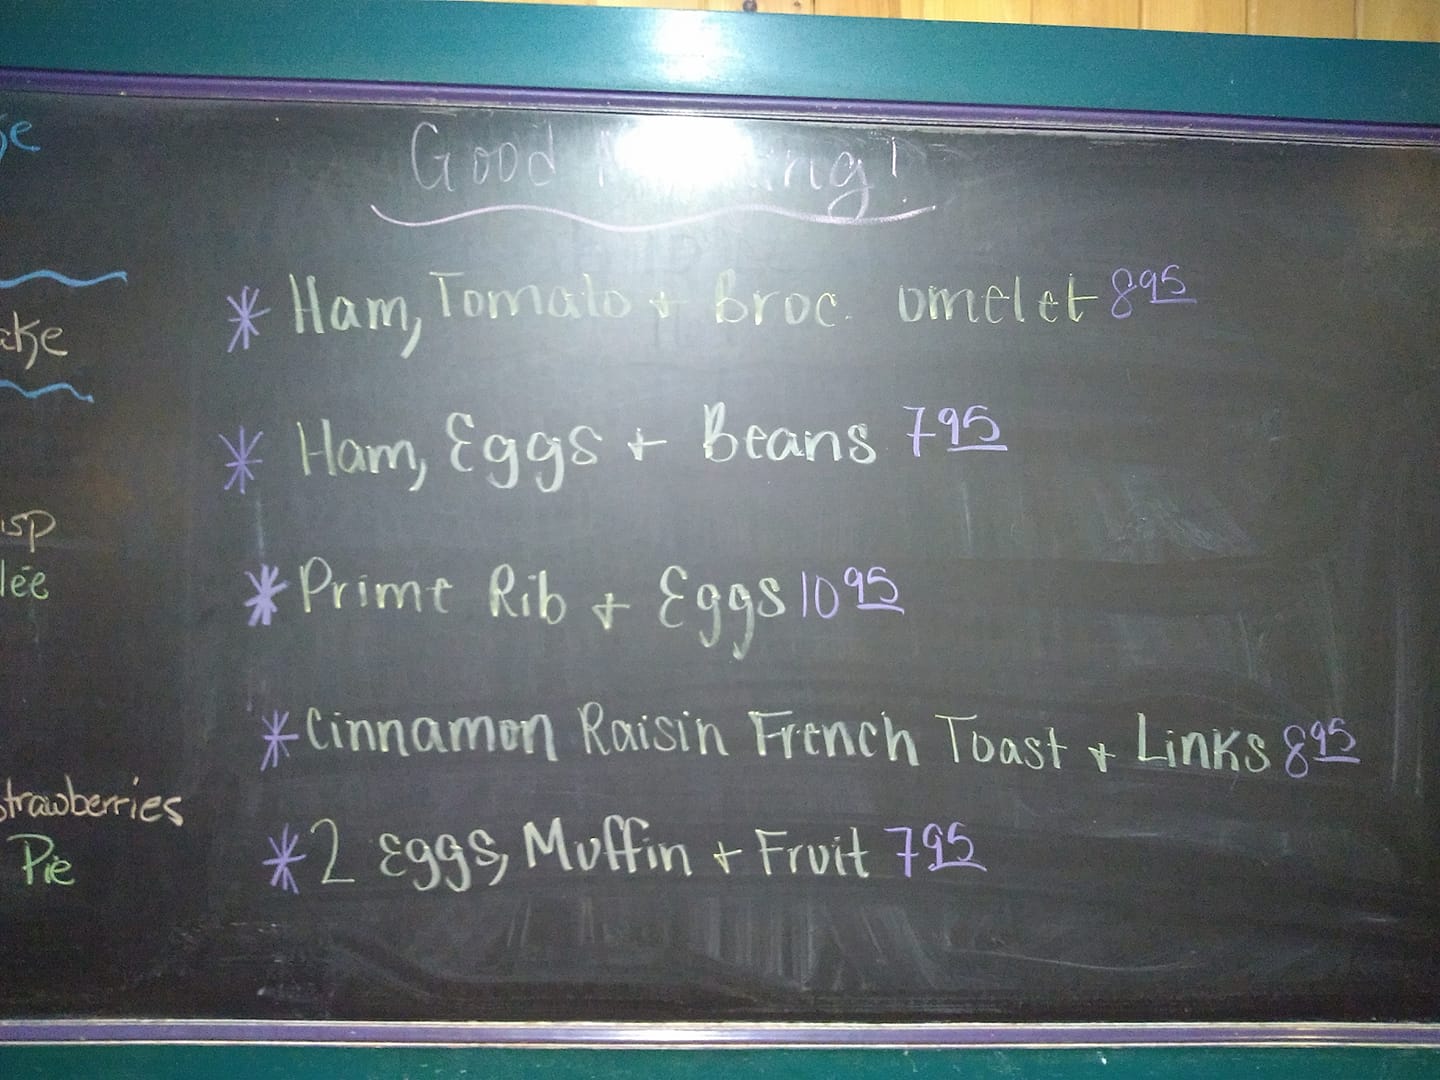 Good Morning!
* Ham, Tomato + Broc. omelet 8 95
* Ham, Eggs + Beans 7 95
* Prime Rib + Eggs 10 95
* Cinnamon Raisin French Toast + Links 8 95
* 2 Eggs, Muffin + Fruit 7 95
strawberries
Pie